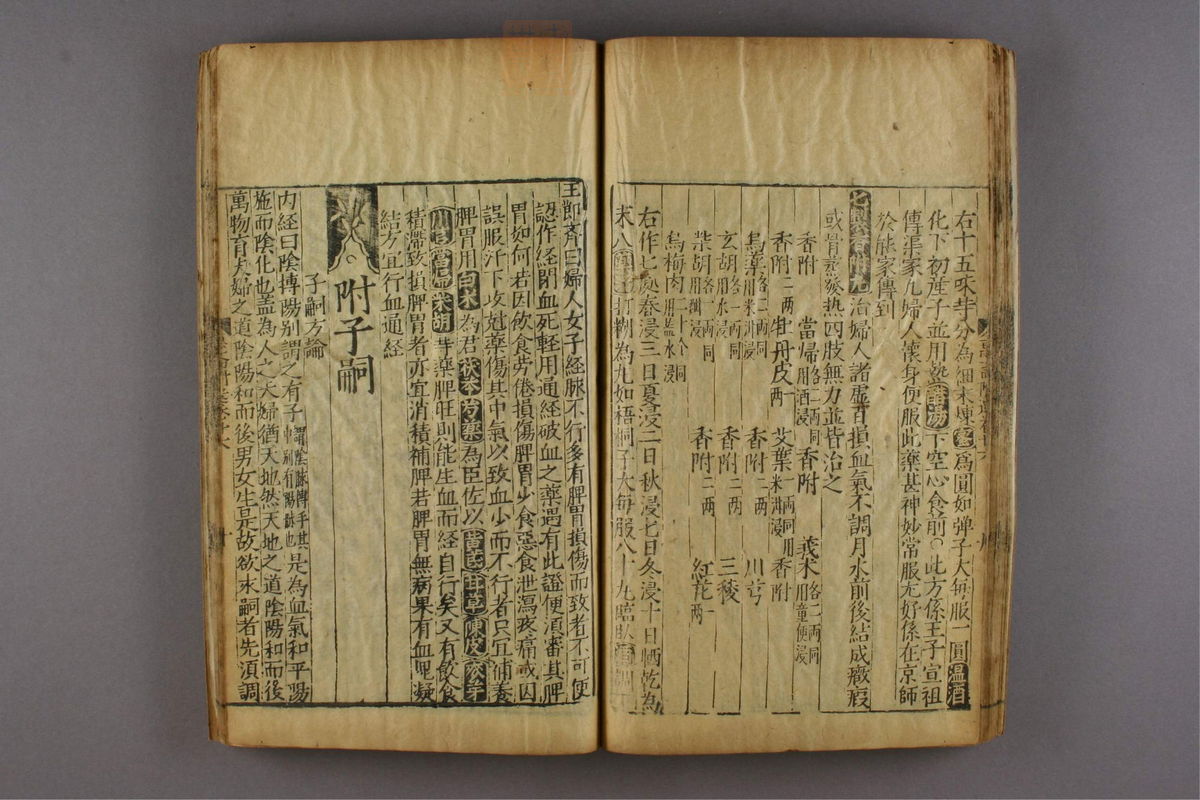 右十五味等分為細末煉蜜為圓如弹子大每服一圓温酒
化下初産子並用熟湯下空心食前○此方係王子宣祖
傳渠家凢婦人懷身便服此藥甚神妙常服尤好係在京師
於能家傳到
七製香附丸治婦人諸虚百損血氣不調月水前後結成癥瘕
或骨蒸發热四肢無力並皆治之
香附二两 當帰各二两同用酒浸 香附 莪术各二两同用童便浸
香附二两 牡丹皮一两 艾葉一两同用米泔浸 香附
烏藥各二两同用米泔浸 香附二两 川芎
玄胡各一两同用水浸 香附二两 三稜
柴胡各一两同用醋浸 香附二两 紅花一两
烏梅肉二十个同用盐水浸
右作七處春浸三日夏浸二日秋浸七日冬浸十日晒乾為
末打糊為丸如梧桐子大每服八十丸臨臥酒調下
王節斉曰婦人女子經脉不行多有脾胃損傷而致者不可便
認作经閉血死輕用通經破血之藥遇有此證便須審其脾
胃如何若因飲食劳倦損傷脾胃少食惡食泄瀉疼痛或因
誤服汗下攻尅藥傷其中氣以致血少而不行者只宜補養
脾胃用白术為君茯苓芍藥為臣佐以黄芪甘草陳皮麥芽
川芎當帰柴胡等藥脾旺則能生血而經自行矣又有飲食
積滯致損脾胃者亦宜消積補脾若脾胃無病果有血塊凝
結方宜行血通經
附子嗣
子嗣方論
内经曰陰搏陽别謂之有子謂陰脉搏手其中别有陽脉也是為血氣和平陽
施而陰化也盖為人之夫婦猶天地然天地之道陰陽和而後
萬物育夫婦之道陰陽和而後男女生是故欲求嗣者先須調